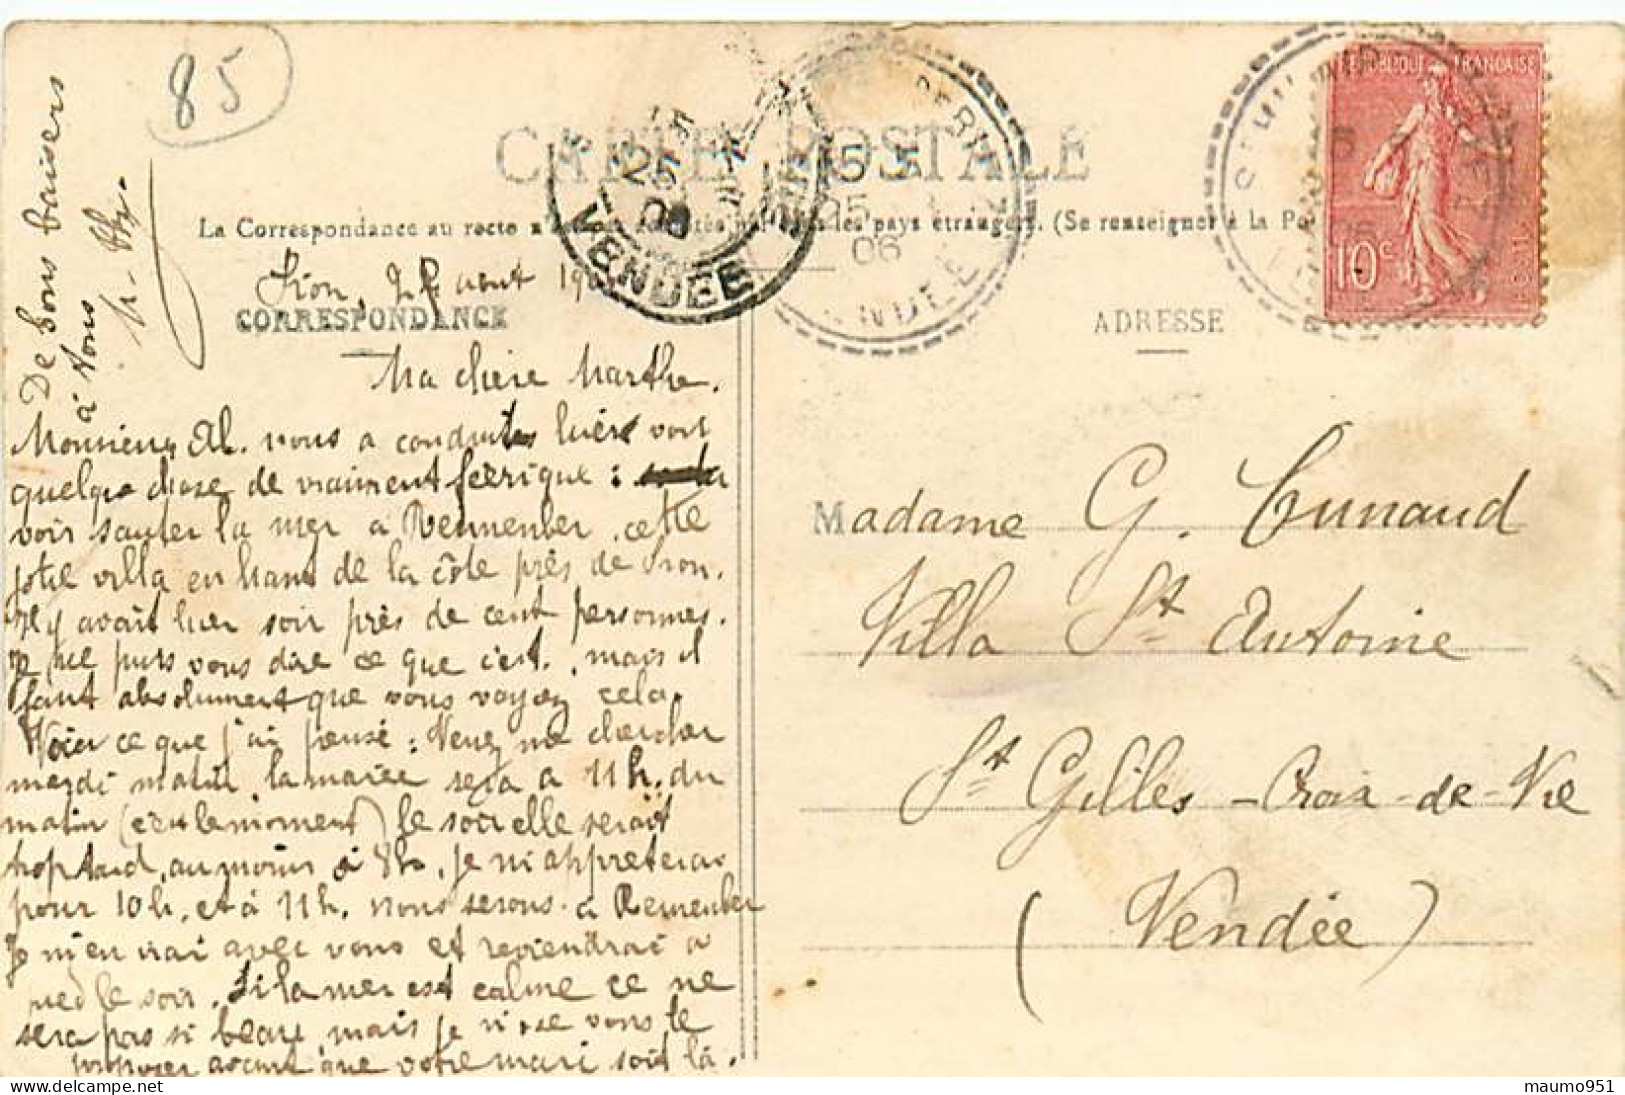 85
CARTE POSTALE
La Correspondance au recto n'est pas acceptée par tous les pays étrangers. (Se renseigner à la Po
CORRESPONDANCE
ADRESSE
REPUBLIQUE FRANCAISE
10c
VENDEE
25
06
De bons baisers
à vous
Sion, 25 août 190
Ma chère Marthe.
Monsieur Al. nous a conduites hier voir
quelque chose de vraiment féerique :
voir sauter la mer à Remember, cette
jolie villa en haut de la côte près de Sion.
Il y avait hier soir près de cent personnes.
Je ne puis vous dire ce que c'est, mais il
faut absolument que vous voyez cela.
Voici ce que j'ai pensé : Venez me chercher
mardi matin, la marée sera à 11h. du
matin (c'est le moment) le soir elle serait
trop tard, au moins à 8h. Je m'apprêterai
pour 10h. et à 11h. nous serons à Remember
Je m'en irai avec vous et reviendrai à
pied le soir. Si la mer est calme ce ne
sera pas si beau, mais je n'ose vous le
proposer avant que votre mari soit là.
Madame G. Cunaud
Villa St Antoine
St Gilles-Croix-de-Vie
(Vendée)
maumo951